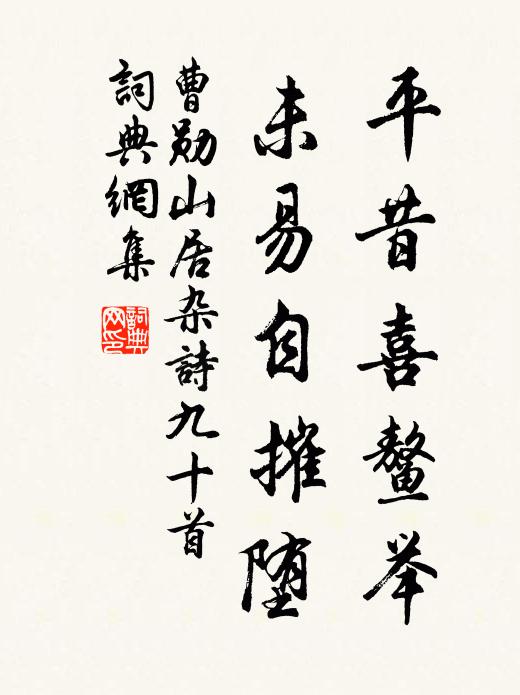 平昔喜鳌举
未易自摧堕
曹勋山居杂詩九十首
詞典網集
詞典网印